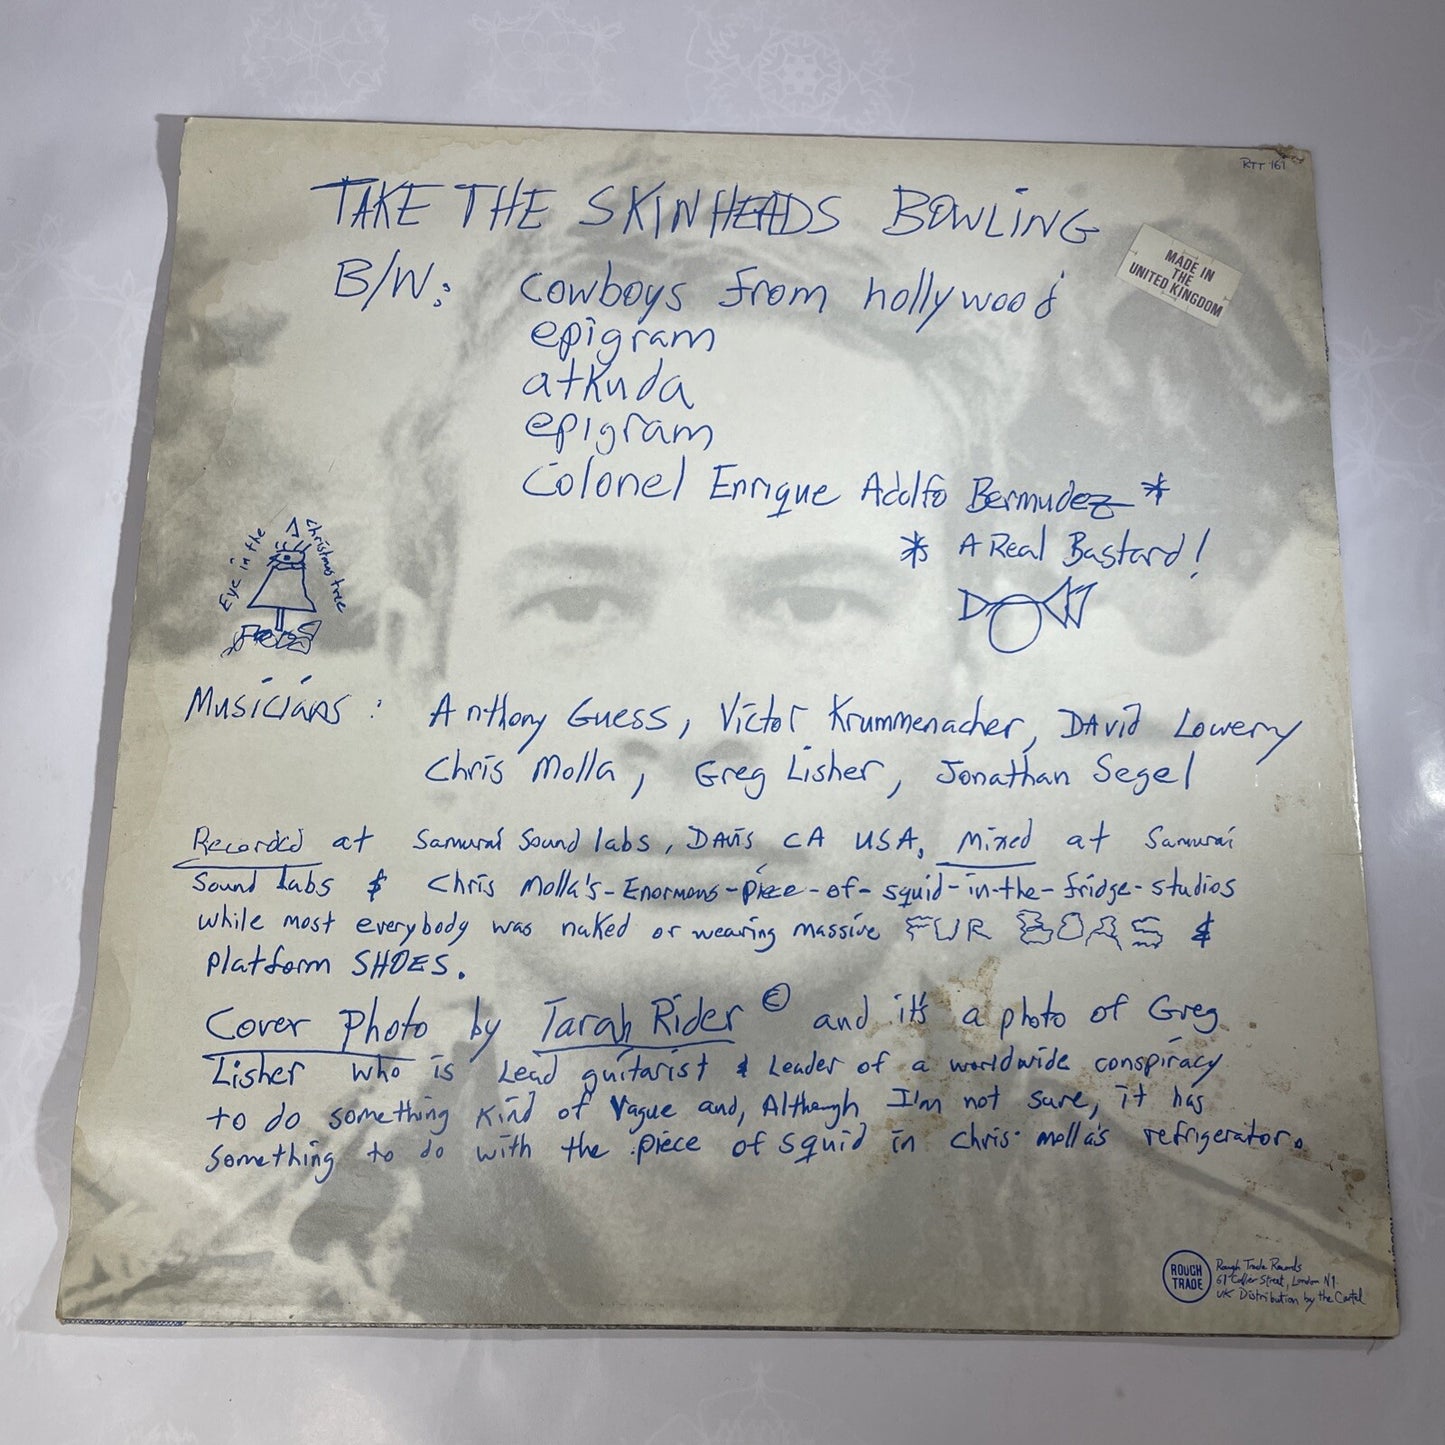 RTT 161
TAKE THE SKINHEADS BOWLING
MADE IN
THE
UNITED KINGDOM
B/W: cowboys from hollywood
epigram
atkuda
epigram
Colonel Enrique Adolfo Bermudez *
* A Real Bastard!
Eye in the Christmas tree
Musicians: Anthony Guess, Victor Krummenacher, David Lowery
Chris Molla, Greg Lisher, Jonathan Segel
Recorded at Samurai Sound labs, DAvis CA USA, Mixed at Samurai
Sound Labs & Chris Molla's-Enormous-piece-of-squid-in-the-fridge-studios
while most everybody was naked or wearing massive FUR BOAS &
platform SHOES.
Cover Photo by Tarah Rider © and it's a photo of Greg
Lisher who is Lead guitarist & Leader of a worldwide conspiracy
to do something kind of Vague and, Although I'm not sure, it has
something to do with the piece of squid in chris molla's refrigerator.
ROUGH
TRADE
Rough Trade Records
61 Collier Street, London N1.
UK Distribution by the Cartel